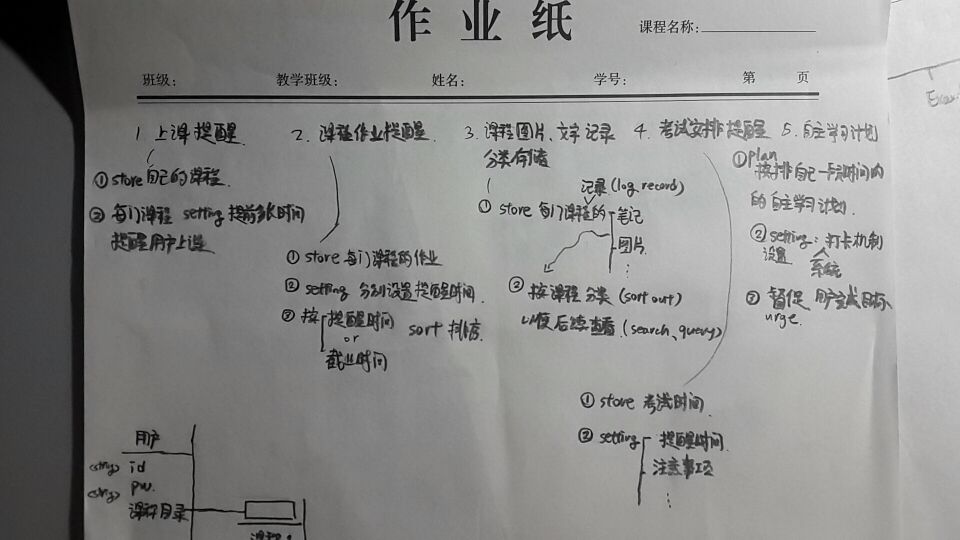 作业纸
课程名称:
班级: 教学班级: 姓名: 学号: 第 页
1 上课提醒.
① store 自己的课程.
② 每门课程 setting 提前多长时间
提醒用户上课
2. 课程作业提醒.
① store 每门课程的作业
② setting 分别设置提醒时间.
③ 按 提醒时间 sort 排序.
or
截止时间
3. 课程图片、文字记录
分类存储
记录(log, record)
① store 每门课程的 笔记
图片.
⋮
② 按课程分类 (sort out)
以便后续查看 (search, query)
4. 考试安排提醒
① store 考试时间.
② setting 提醒时间.
注意事项
⋮
5. 自主学习计划
① plan
按排自己一段时间内
的自主学习计划.
② setting: 打卡机制
设置 系统
③ 督促 用户完成目标.
urge.
用户
<string> id
<string> pw.
课程目录
课程1
Exam